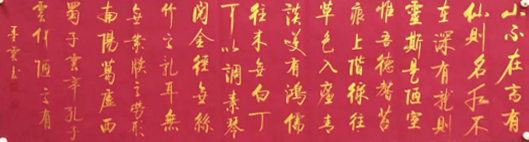 山不在高有
仙则名水不
在深有龍則
靈斯是陋室
惟吾德馨苔
痕上階緑
草色入簾青
談笑有鴻儒
往来無白丁
可以調素琴
閲金經無絲
竹之乱耳無
案牘之勞形
南陽諸葛廬西
蜀子雲亭孔子
云何陋之有